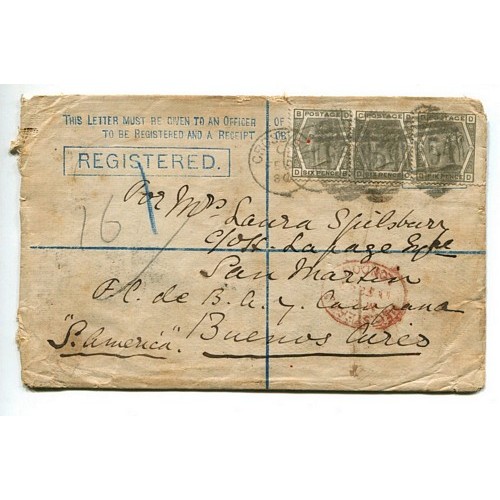 THIS LETTER MUST BE GIVEN TO AN OFFICER OF
TO BE REGISTERED AND A RECEIPT OB
REGISTERED.
POSTAGE POSTAGE POSTAGE
SIX PENCE SIX PENCE SIX PENCE
16
Por Mrs
Laura Spilsbury
c/o H. Lapage Esqre
San Martin
F.C. de B.A. y Campana
"S. America". Buenos Aires